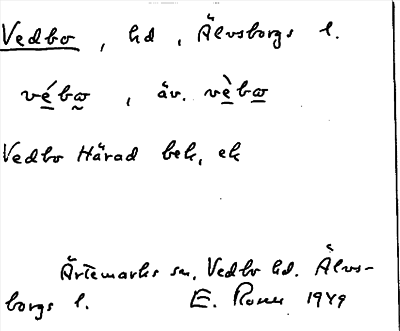 Vedbo, hd, Älvsborgs l.
vé̲bω̰, äv. vè̲bω̲
Vedbo Härad bek, ek
Ärtemarks sn, Vedbo hd. Älvs-
borgs l. E. 1949